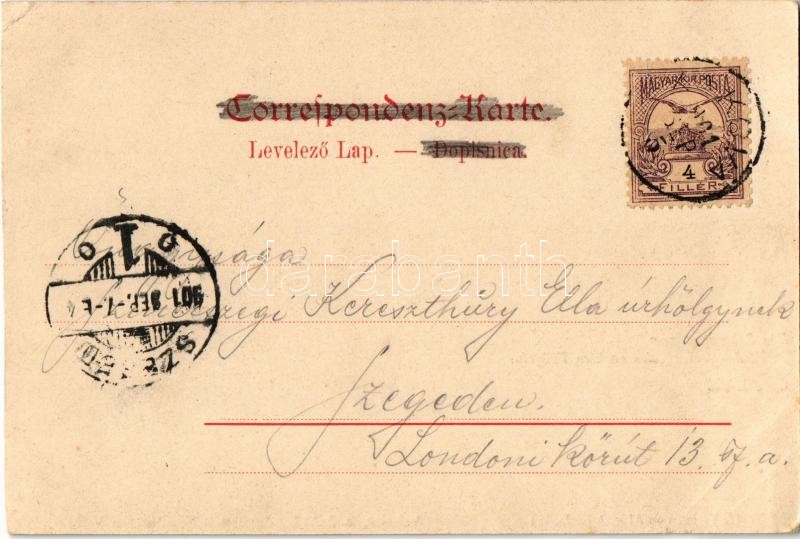 Correspondenz-Karte.
Levelező Lap. — Dopisnica.
MAGYAR KIR. POSTA
4
FILLÉR
1
901 SEP. -7.
Kereszthúry Ella úrhölgynek
Szegeden.
Londoni körút 13. sz. a.
darabanth